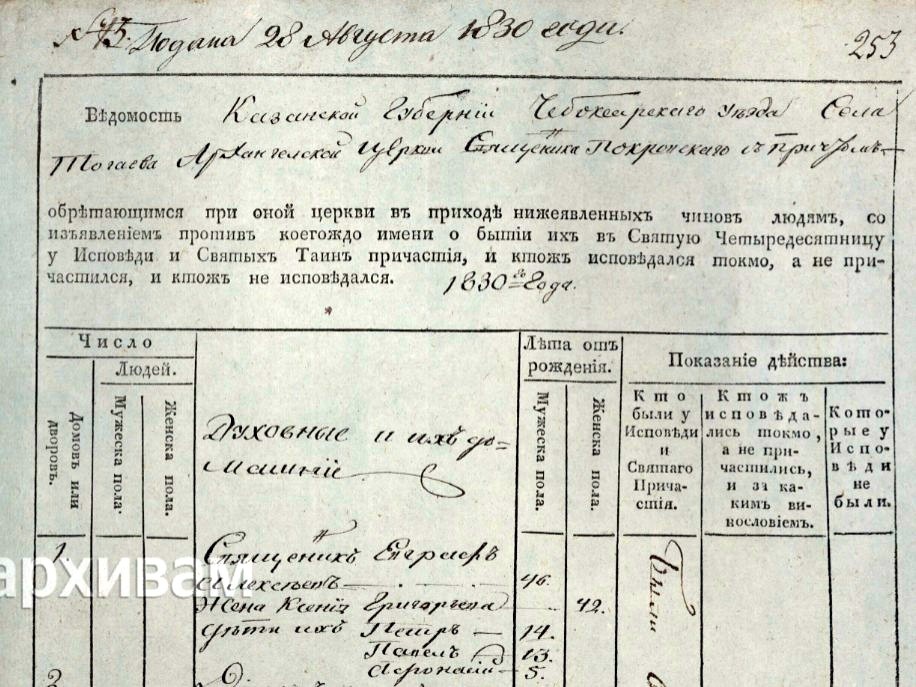 № 43. Подана 28 Августа 1830 года.
253
Вѣдомость Казанской Губерніи Чебоксарскаго уѣзда Села
Тогаева Архангелской Церкви Священика Покровскаго съ Причтомъ
обрѣтающимся при оной церкви въ приходѣ нижеявленныхъ чиновъ людямъ, со
изъявленіемъ противъ коегождо имени о бытіи ихъ въ Святую Четыредесятницу
у Исповѣди и Святыхъ Таинъ причастія, и ктожъ исповѣдался токмо, а не при-
частился, и ктожъ не исповѣдался. 1830 года.
Число
Людей.
Домовъ или
дворовъ.
Мужеска пола.
Женска пола.
Духовные и ихъ до=
машніе
Лѣта отъ
рожденія.
Мужеска пола.
Женска пола.
Показаніе дѣйства:
Кто
были у
Исповѣди
и
Святаго
Прича-
стія.
Ктожъ
исповѣда-
лись токмо,
а не при-
частились,
и за ка-
кимъ ви-
нословіемъ.
Кото-
рые у
Испо-
вѣди
не
были.
1. Священикъ Евграфъ
Алексѣевъ 46.
Жена Ксенія Григорьева 42.
дѣти ихъ Петръ 14.
Павелъ 13.
Афонасій 5.
Были
2
архивам